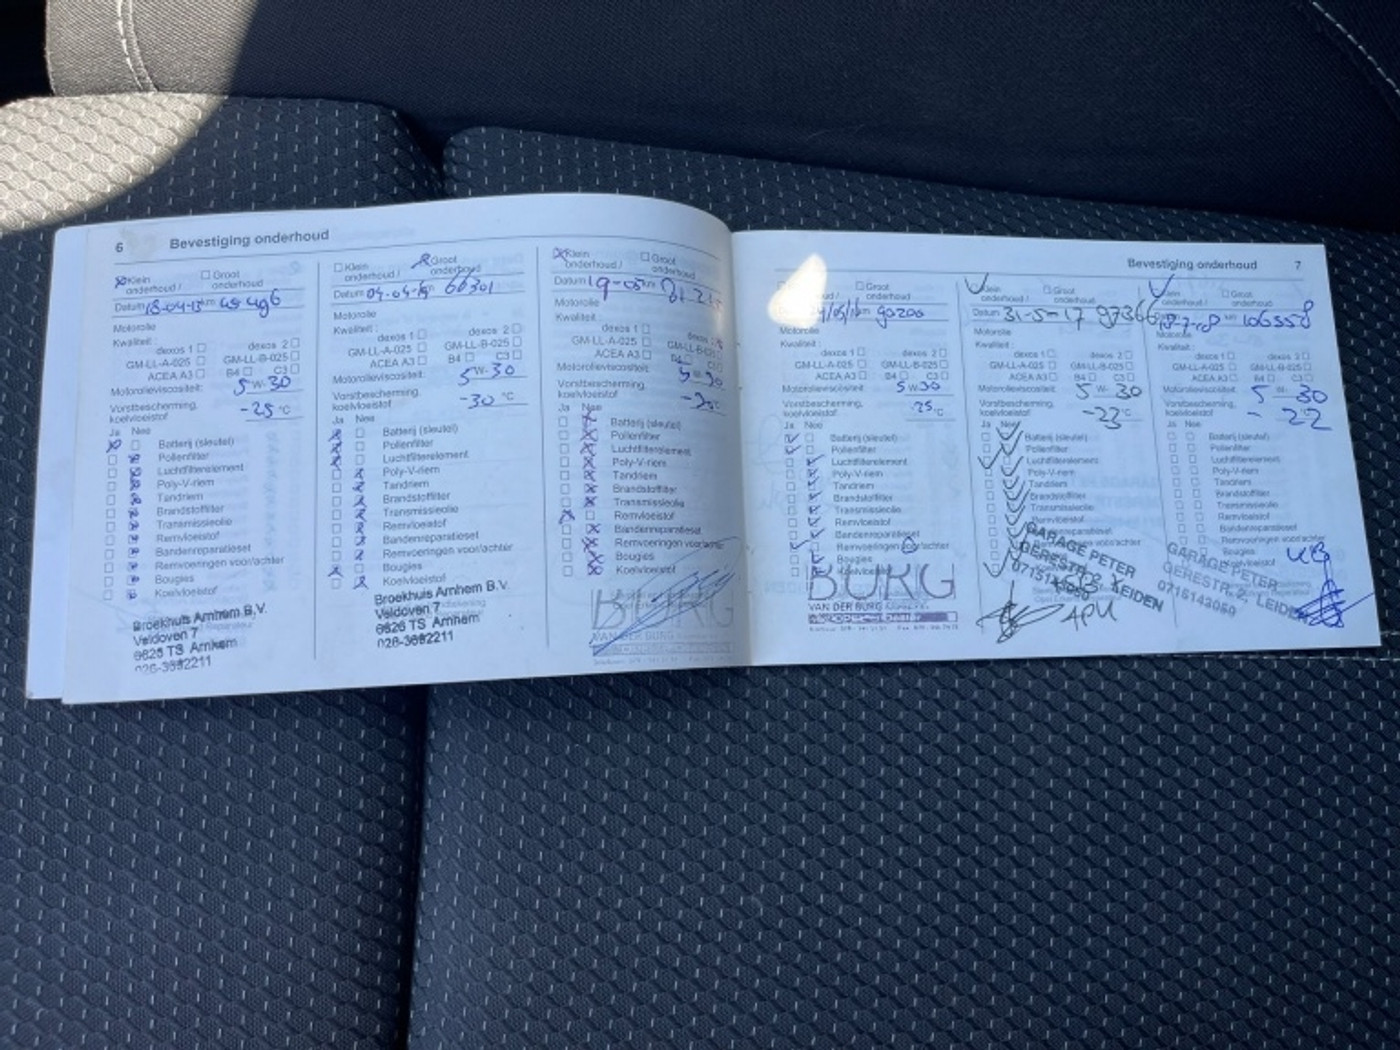 6 Bevestiging onderhoud
Klein onderhoud / Groot
Datum 18-04-13 km 49496
Motorolie
Kwaliteit:
dexos 1 dexos 2
GM-LL-A-025 GM-LL-B-025
ACEA A3 B4 C3
Motorolieviscositeit: 5W-30
Vorstbescherming, koelvloeistof -25 °C
Ja Nee
Batterij (sleutel)
Pollenfilter
Luchtfilterelement
Poly-V-riem
Tandriem
Brandstoffilter
Transmissieolie
Remvloeistof
Bandenreparatieset
Remvoeringen voor/achter
Bougies
Koelvloeistof
Broekhuis Arnhem B.V.
Veldoven 7
6826 TS Arnhem
026-3692211
Klein onderhoud / Groot onderhoud
Datum 04-04-14 km 66301
Motorolie
Kwaliteit:
dexos 1 dexos 2
GM-LL-A-025 GM-LL-B-025
ACEA A3 B4 C3
Motorolieviscositeit: 5W-30
Vorstbescherming, koelvloeistof -30 °C
Ja Nee
Batterij (sleutel)
Pollenfilter
Luchtfilterelement
Poly-V-riem
Tandriem
Brandstoffilter
Transmissieolie
Remvloeistof
Bandenreparatieset
Remvoeringen voor/achter
Bougies
Koelvloeistof
Broekhuis Arnhem B.V.
Veldoven 7
6826 TS Arnhem
026-3692211
Klein onderhoud / Groot onderhoud
Datum 19-05 km
Motorolie
Kwaliteit:
dexos 1
GM-LL-A-025 GM-LL-B-025
ACEA A3
Motorolieviscositeit: 5W-30
Vorstbescherming, koelvloeistof
Ja Nee
Batterij (sleutel)
Pollenfilter
Luchtfilterelement
Poly-V-riem
Tandriem
Brandstoffilter
Transmissieolie
Remvloeistof
Bandenreparatieset
Remvoeringen voor/achter
Bougies
Koelvloeistof
BURG
VAN DER BURG
Bevestiging onderhoud 7
Groot onderhoud
km 90200
Motorolie
Kwaliteit:
dexos 1 dexos 2
GM-LL-A-025 GM-LL-B-025
ACEA A3 B4 C3
Motorolieviscositeit: 5W30
Vorstbescherming, koelvloeistof -25 °C
Ja Nee
Batterij (sleutel)
Pollenfilter
Luchtfilterelement
Poly-V-riem
Tandriem
Brandstoffilter
Transmissieolie
Remvloeistof
Bandenreparatieset
Remvoeringen voor/achter
Bougies
Koelvloeistof
BURG
VAN DER BURG
Klein onderhoud / Groot onderhoud
Datum 31-5-17 97366
Motorolie
Kwaliteit:
dexos 1 dexos 2
GM-LL-A-025 GM-LL-B-025
ACEA A3 B4 C3
Motorolieviscositeit: 5W-30
Vorstbescherming, koelvloeistof -23 °C
Ja Nee
Batterij (sleutel)
Pollenfilter
Luchtfilterelement
Poly-V-riem
Tandriem
Brandstoffilter
Transmissieolie
Remvloeistof
Bandenreparatieset
GARAGE PETER
GERESTR. 2 LEIDEN
0715143050
APU
Klein onderhoud / Groot onderhoud
18-7-18 km 106558
Motorolie
Kwaliteit:
dexos 1 dexos 2
GM-LL-A-025 GM-LL-B-025
ACEA A3 B4 C3
Motorolieviscositeit: 5-30
Vorstbescherming, koelvloeistof -22
Ja Nee
Batterij (sleutel)
Pollenfilter
Luchtfilterelement
Poly-V-riem
Tandriem
Brandstoffilter
Transmissieolie
Remvloeistof
Bandenreparatieset
Bougies
GARAGE PETER
GERESTR. 2, LEIDEN
0715143050